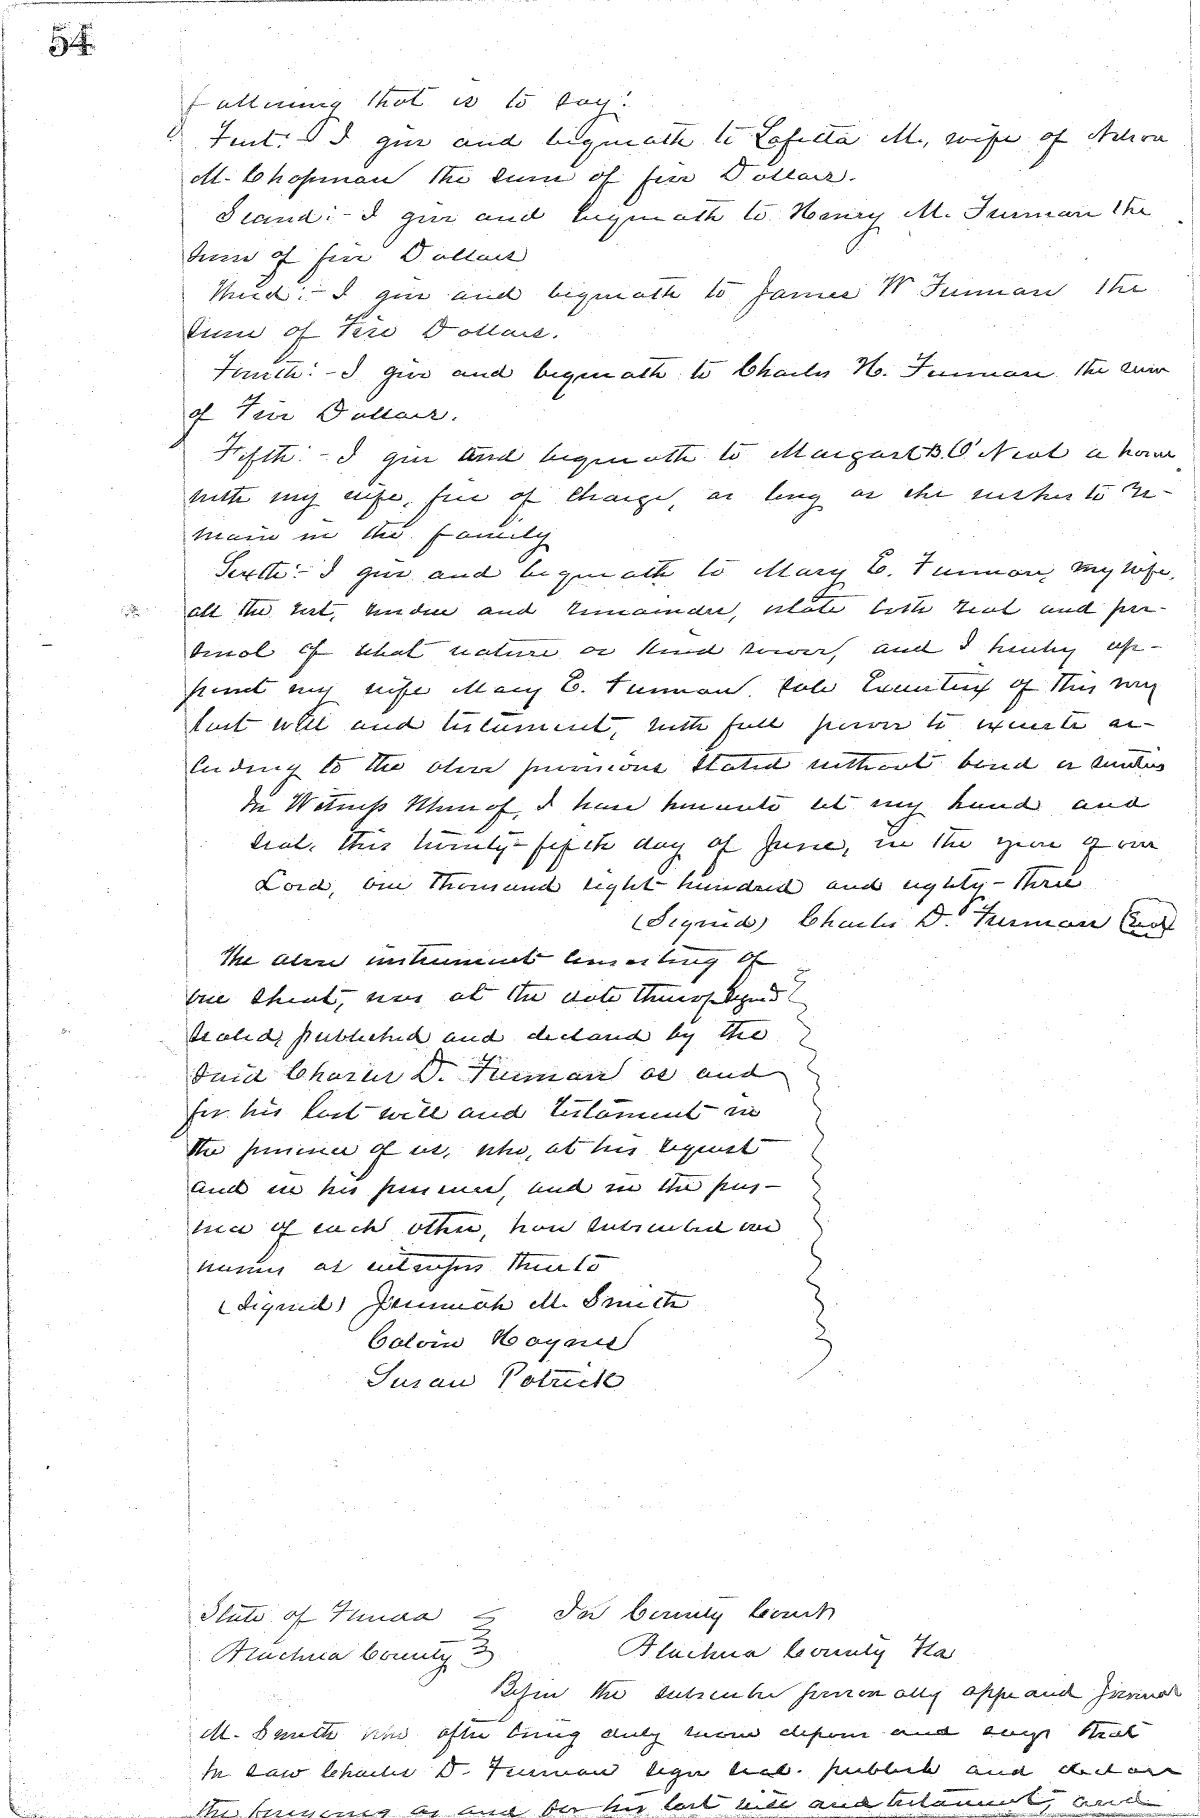 54
following that is to say:
First:- I give and bequeath to Lafetta M., wife of Nelson
M. Chapman the sum of five Dollars.
Second:- I give and bequeath to Henry M. Furman the
sum of five Dollars
Third:- I give and bequeath to James W Furman the
sum of Five Dollars.
Fourth:- I give and bequeath to Charles H. Furman the sum
of Five Dollars.
Fifth:- I give and bequeath to Margaret B. O'Neal a home
with my wife, free of charge, as long as she wishes to re-
main in the family
Sixth:- I give and bequeath to Mary E. Furman, my wife,
all the rest, residue and remainder, estate both real and per-
sonal of what nature or kind soever, and I hereby ap-
point my wife Mary E. Furman sole Executrix of this my
last will and testament, with full power to execute ac-
cording to the above provisions stated without bond or sureties
In Witness Whereof, I have hereunto set my hand and
seal, this twenty-fifth day of June, in the year of our
Lord, one thousand eight hundred and eighty-three
(Signed) Charles D. Furman (Seal)
The above instrument consisting of
one sheet, was at the date thereof signed
sealed, published and declared by the
said Charles D. Furman as and
for his last will and testament in
the presence of us, who, at his request
and in his presence, and in the pres-
ence of each other, have subscribed our
names as witnesses thereto
(Signed) Jeremiah M. Smith
Calvin Haynes
Susan Patrick
State of Florida In County Court
Alachua County Alachua County Fla
Before the subscriber personally appeared Jeremiah
M. Smith who after being duly sworn deposes and says that
he saw Charles D. Furman sign seal, publish and declare
the foregoing as and for his last will and testament, and